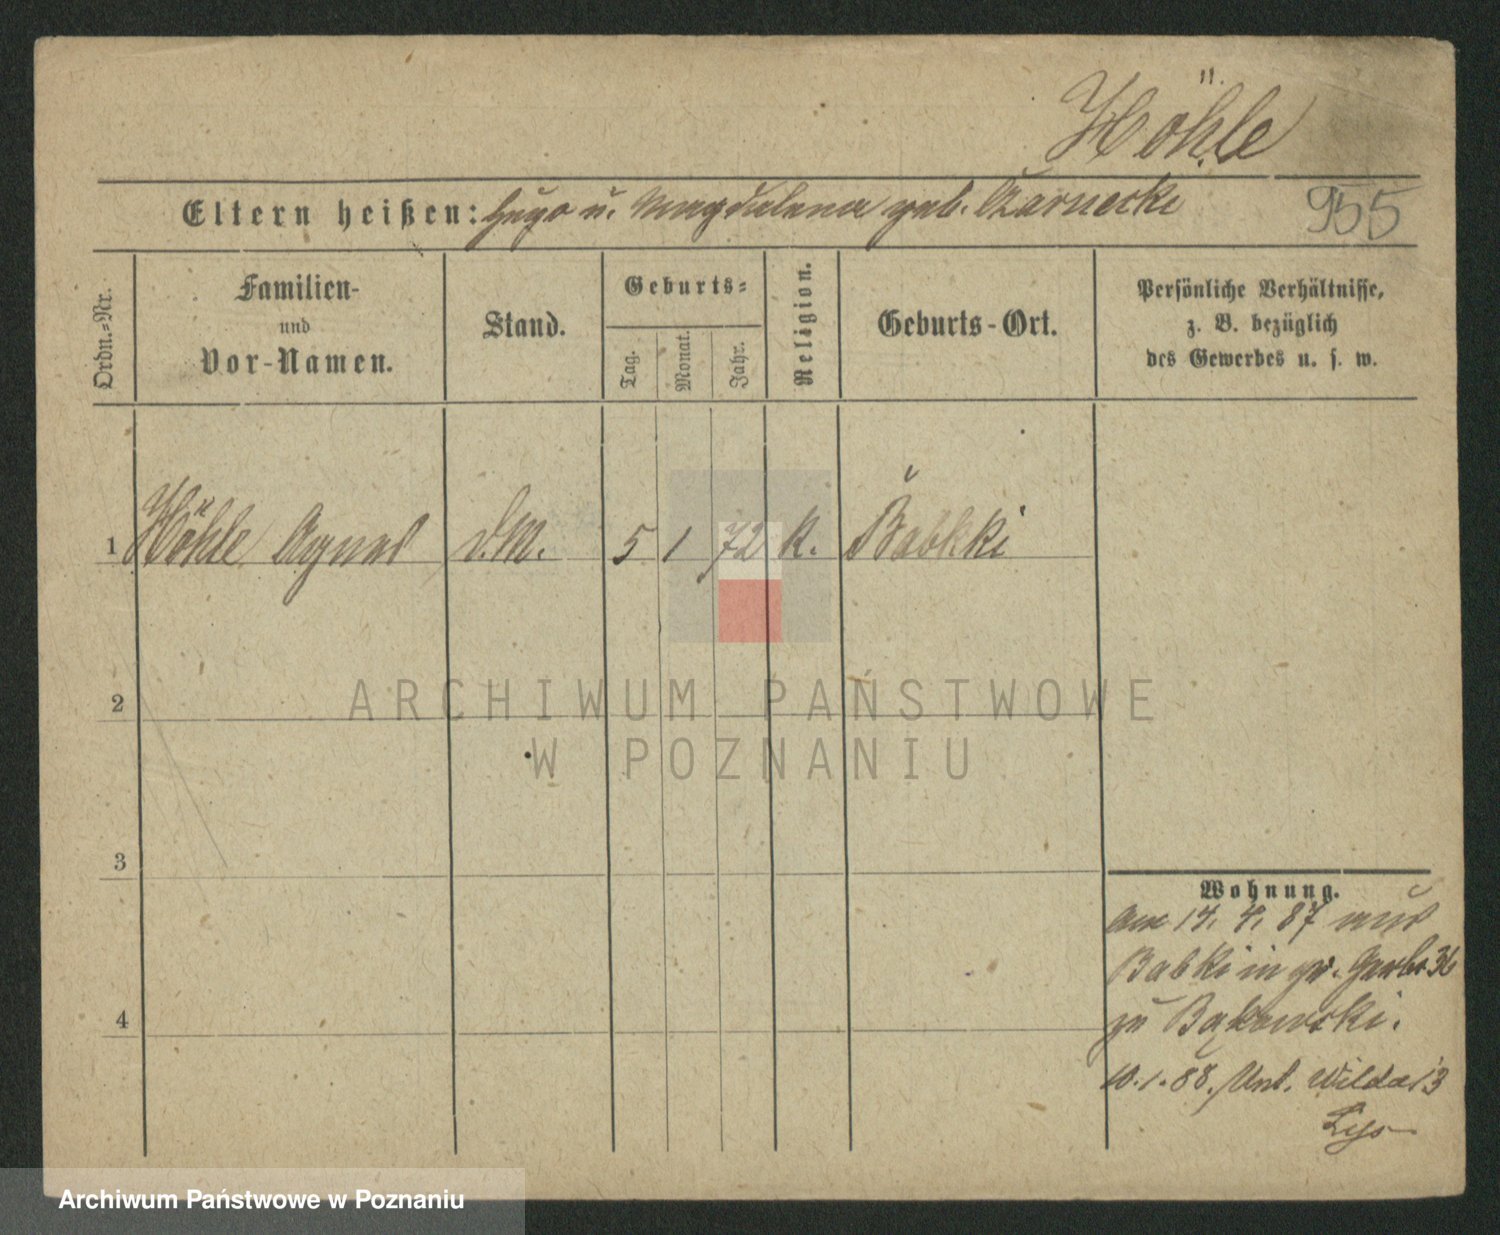 Höhle
Eltern heißen: Hugo u. Magdalena geb. Czarnecki
955
Ordn.=Nr.
Familien-
und
Vor-Namen.
Stand.
Geburts=
Tag.
Monat.
Jahr.
Religion.
Geburts-Ort.
Persönliche Verhältnisse,
z. B. bezüglich
des Gewerbes u. s. w.
1 Höhle Agnes d.M. 5 1 72 k. Babkki
2
ARCHIWUM PAŃSTWOWE
W POZNANIU
3
Wohnung.
am 14. 4. 87 aus
Babki in gr. Gerbr 36
zu Bąkowski.
4
10.1.88. Unt. Wilda 13
Archiwum Państwowe w Poznaniu